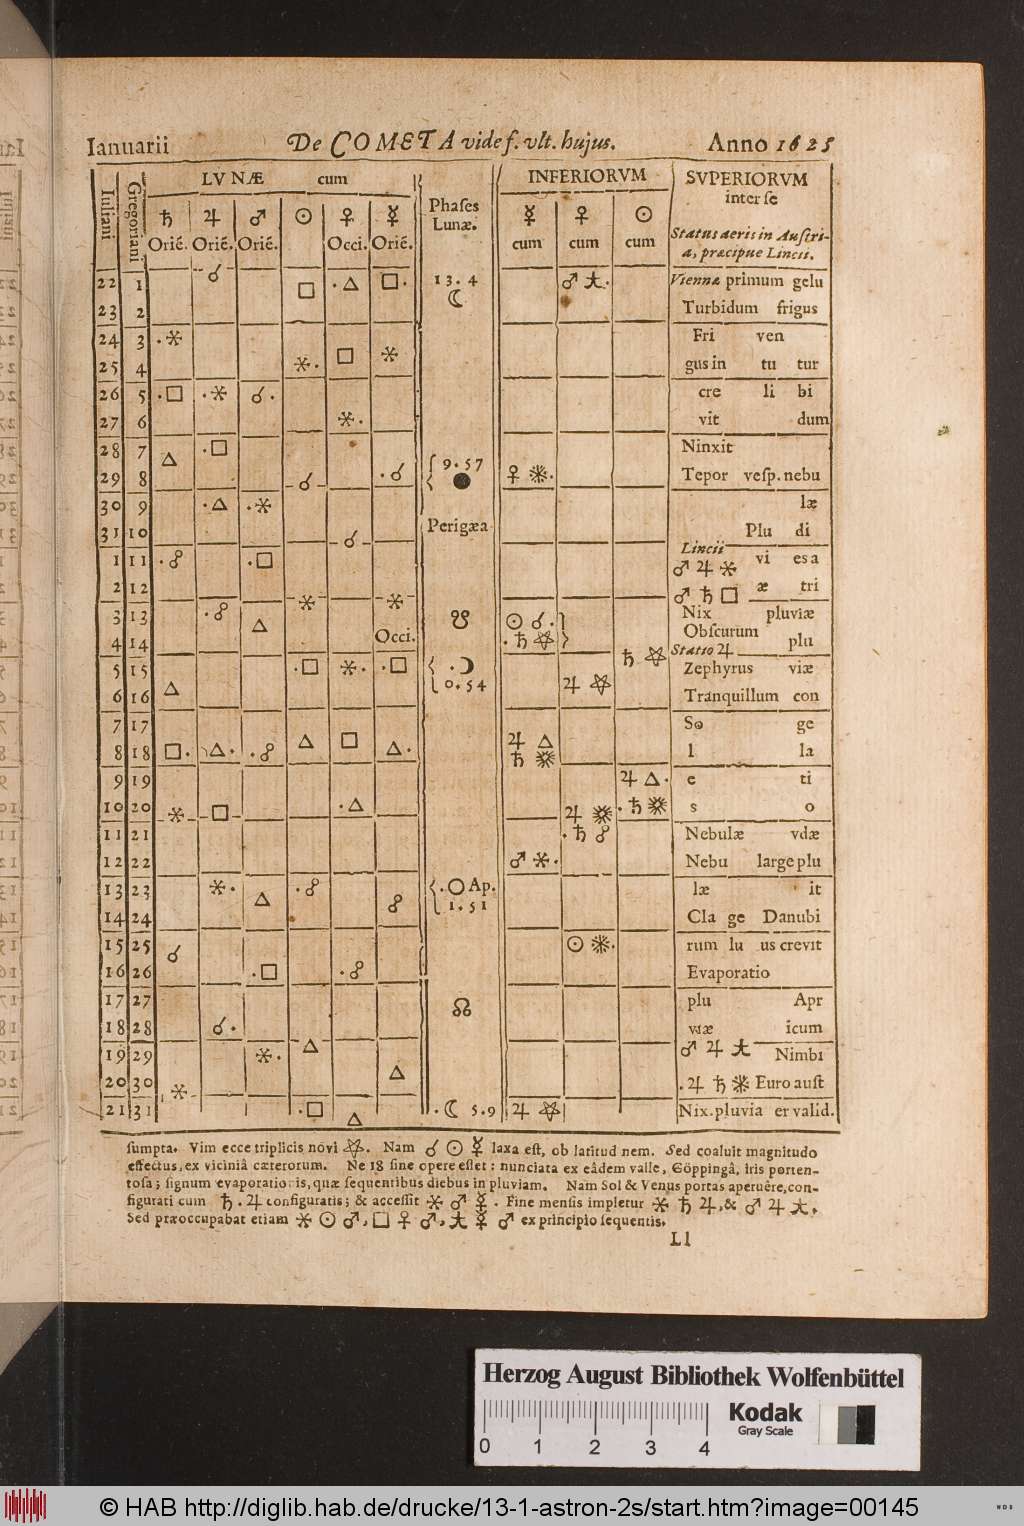 Ianuarii De COMETA vide f. vlt. hujus. Anno 1625
Iuliani Gregoriani LVNÆ cum Phases Lunæ. INFERIORVM SVPERIORVM inter se
♄ ♃ ♂ ☉ ♀ ☿ ☿ ♀ ☉
Orié. Orié. Orié. Occi. Orié. cum cum cum Status aeris in Austri-
a, præcipue Lincii.
22 1 ☌ □ .△ □. 13.4 ☾ ♂ 大. Viennæ primum gelu
23 2 Turbidum frigus
24 3 .⚹ □ ⚹ Fri ven
25 4 ⚹. gus in tu tur
26 5 .□ .⚹ ☌. cre li bi
27 6 ⚹. vit dum
28 7 △ .□ 9.57 Ninxit
29 8 ☌ .☌ ● ♀ ⚹. Tepor vesp. nebu
30 9 .△ .⚹ læ
31 10 ☌ Perigæa Plu di
1 11 .☍ .□ Lincii ♂ ♃ ⚹ vi es a
2 12 ⚹ ⚹ ♂ ♄ □ æ tri
3 13 .☍ △ ☋ ☉ ☌. Nix pluviæ
4 14 Occi. .♄ ⛤ Obscurum plu
5 15 .□ ⚹. .□ .☽ ♄ ⛤ Statio ♃ Zephyrus viæ
6 16 △ 0.54 ♃ ⛤ Tranquillum con
7 17 △ □ ♃ △ So ge
8 18 □. △. .☍ △. ♄ ⚹ l la
9 19 ♃ △. e ti
10 20 ⚹ □ .△ ♃ ⚹ .♄ ⚹ s o
11 21 .♄ ☍ Nebulæ vdæ
12 22 ♂ ⚹. Nebu large plu
13 23 ⚹. △ .☍ .○ Ap. læ it
14 24 ☍ 1.51 Cla ge Danubi
15 25 ☌ ☉ ⚹. rum lu us crevit
16 26 .□ .☍ Evaporatio
17 27 ☊ plu Apr
18 28 ☌. viæ icum
19 29 ⚹. △ ♂ ♃ 大 Nimbi
20 30 ⚹ △ .♃ ♄ ⚹ Euro aust
21 31 .□ △ .☾ 5.9 ♃ ⛤ Nix. pluvia er valid.
sumpta. Vim ecce triplicis novi ⛤. Nam ☌ ☉ ☿ laxa est, ob latitud nem. Sed coaluit magnitudo
effectus, ex viciniâ cæterorum. Ne 18 sine opere esset: nunciata ex eâdem valle, Göppingâ, iris porten-
tosa; signum evaporationis, quæ sequentibus diebus in pluviam. Nam Sol & Venus portas aperuêre, con-
figurati cum ♄. ♃ configuratis; & accessit ⚹ ♂ ☿. Fine mensis impletur ⚹ ♄ ♃, & ♂ ♃ 大.
Sed præoccupabat etiam ⚹ ☉ ♂, □ ♀ ♂, 大 ☿ ♂ ex principio sequentis.
Ll
Herzog August Bibliothek Wolfenbüttel
Kodak
Gray Scale
0 1 2 3 4
© HAB http://diglib.hab.de/drucke/13-1-astron-2s/start.htm?image=00145